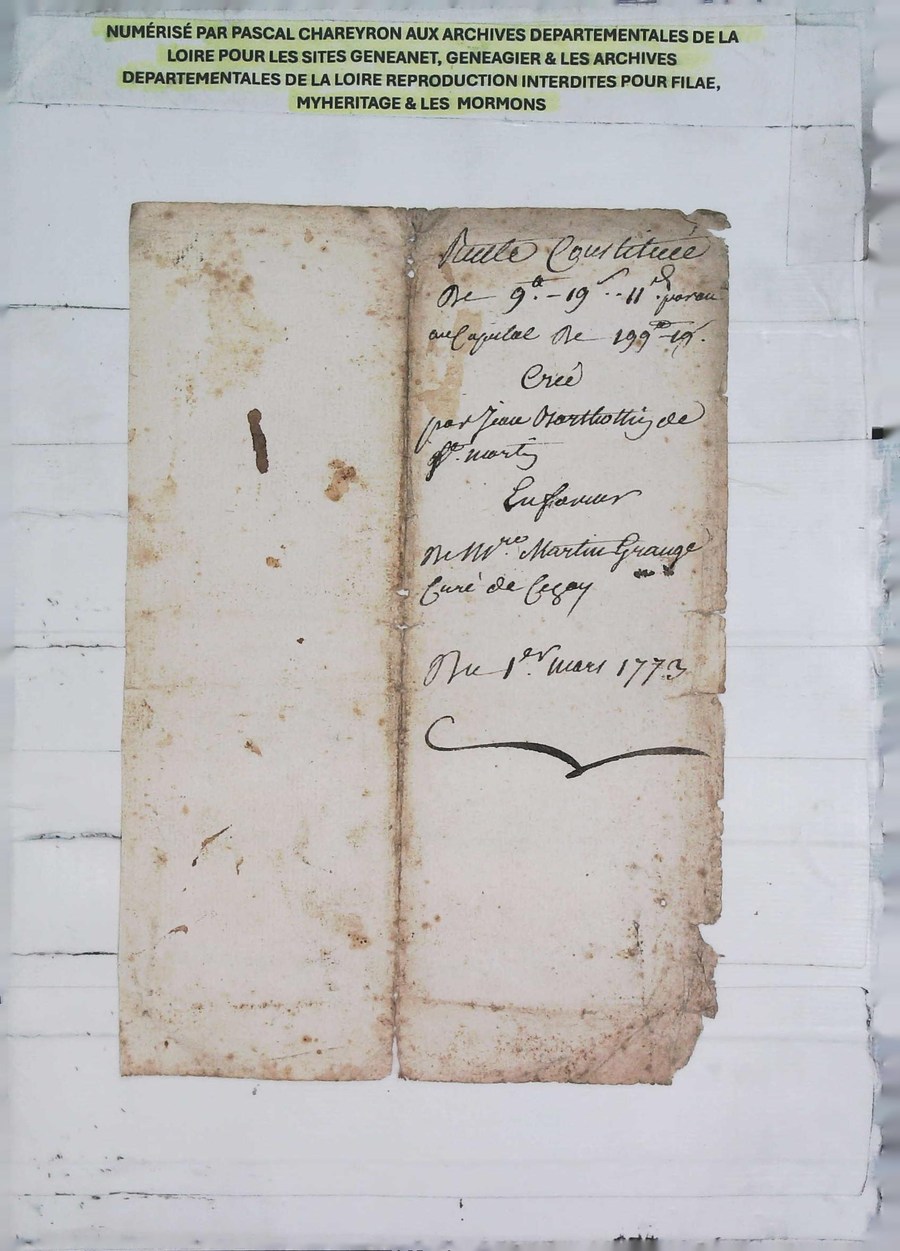 NUMÉRISÉ PAR PASCAL CHAREYRON AUX ARCHIVES DEPARTEMENTALES DE LA
LOIRE POUR LES SITES GENEANET, GENEAGIER & LES ARCHIVES
DEPARTEMENTALES DE LA LOIRE REPRODUCTION INTERDITES POUR FILAE,
MYHERITAGE & LES MORMONS
Rente Constituée
De 9# - 19s - 11d par an
au Capital De 199# 19s.
Creé
par Jean de
St. martin
En faveur
De Mre Martin Grange
Curé de Cezay
Du 1er mars 1773